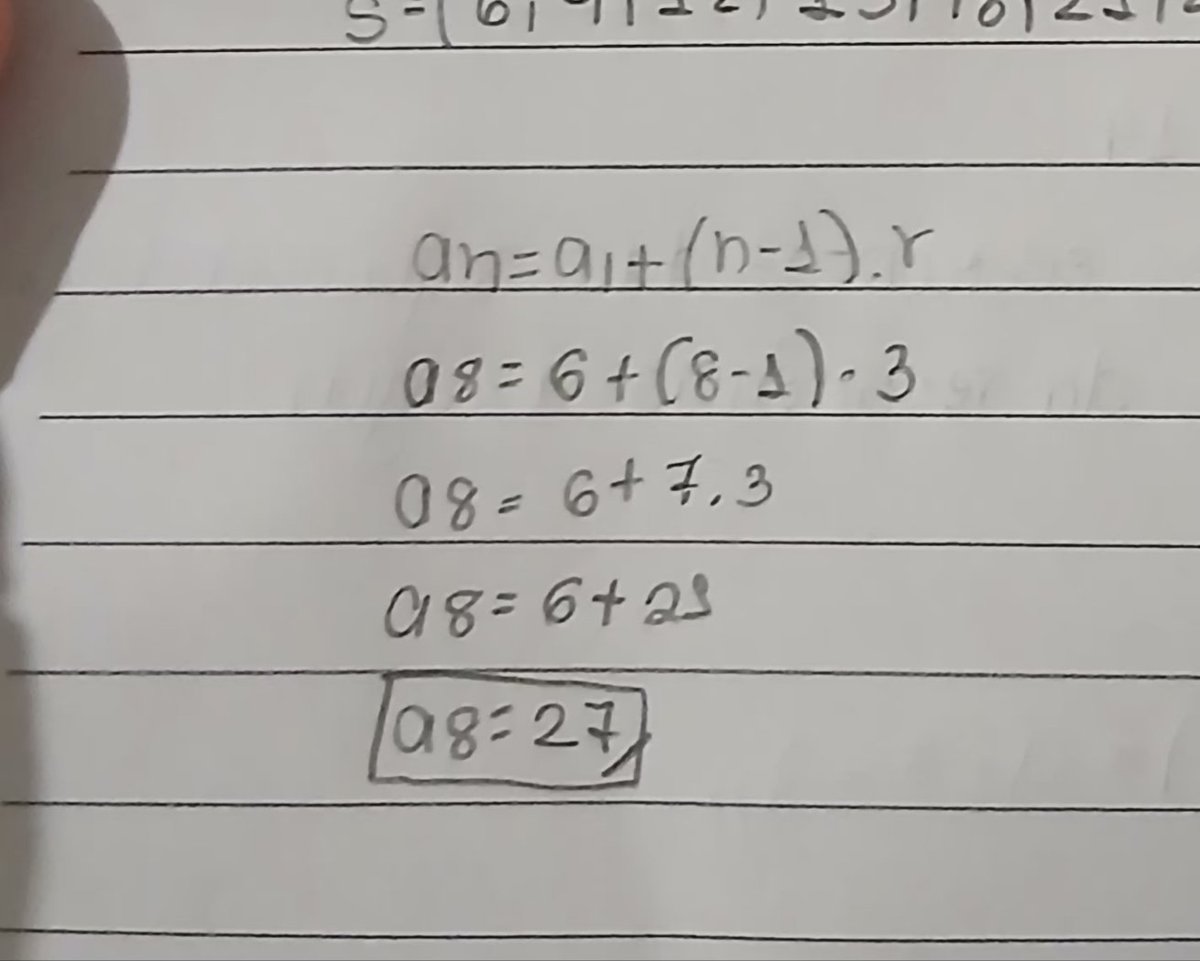 S=(6,9,12,15,18,21,
an=a1+(n-1).r
a8=6+(8-1)·3
a8=6+7.3
a8=6+21
a8=27